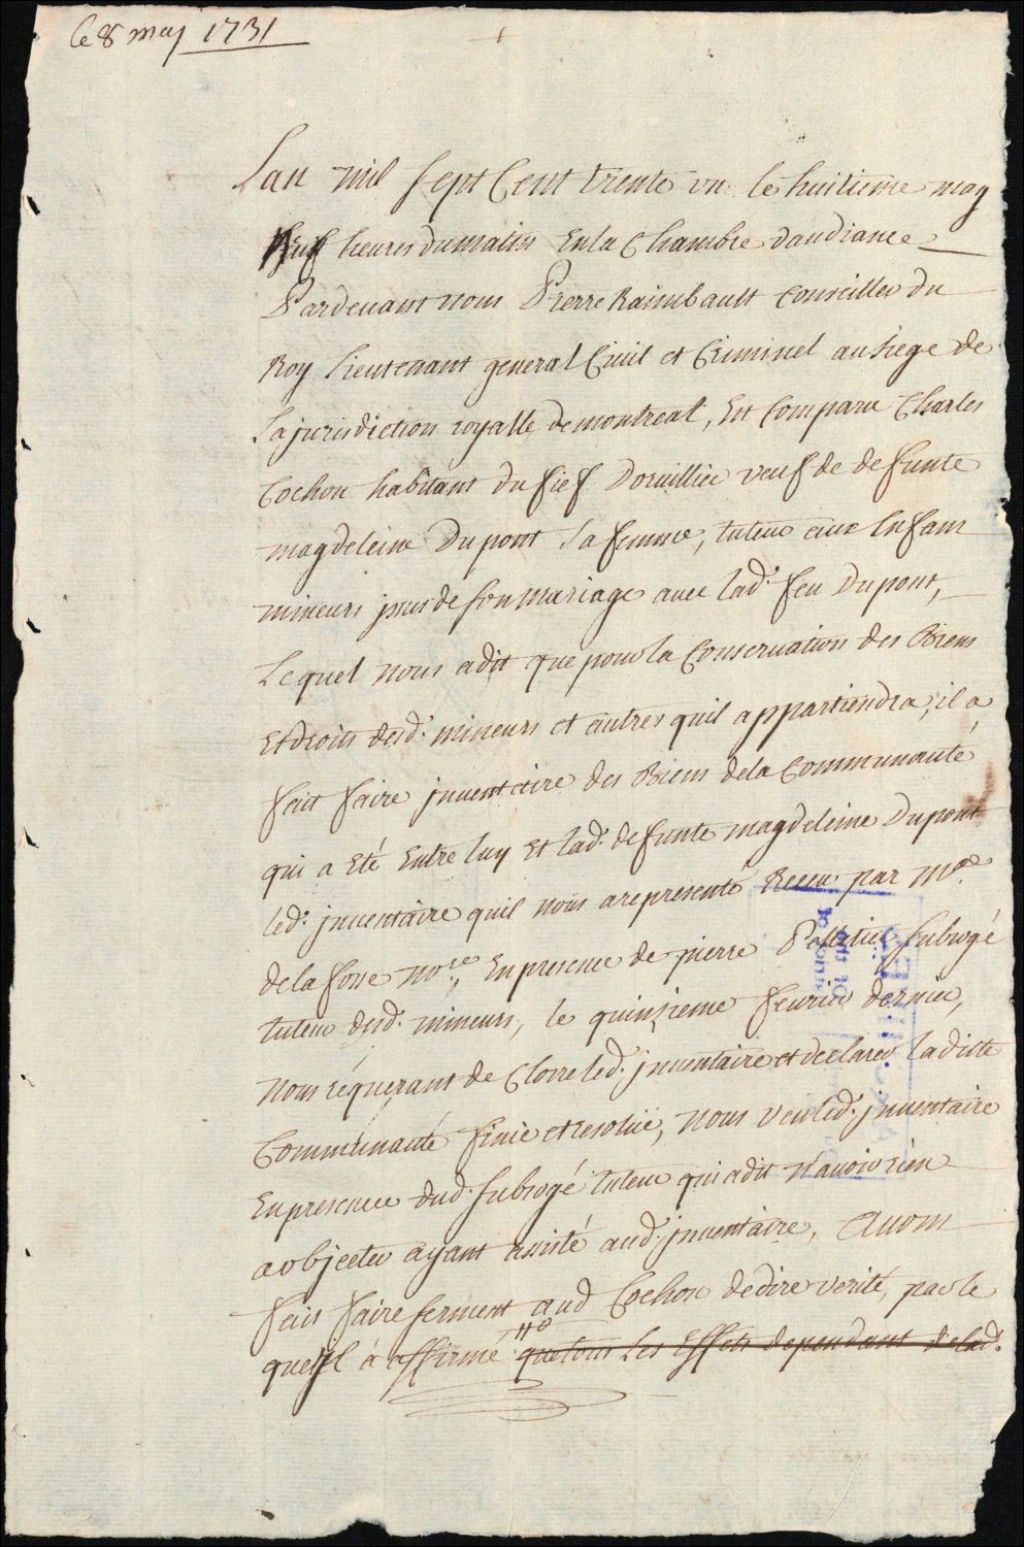 le 8 may 1731
Lan mil sept Cent trente un le huitieme may
Neuf heures du matin En la Chambre daudiance
Pardevant nous Pierre Raimbault Conseiller du
Roy Lieutenant general Civil et Criminel au siege de
La jurisdiction royalle de montreal, Est Comparu Charles
Cochon habitant du fief Dorvillier veuf de defunte
magdeleine Dupont sa femme, tuteur aux Enfans
mineurs jssus de son mariage avec lad. feu Dupont,
Lequel nous a dit que pour la Conservation des Biens
Et droits desd. mineurs et autres quil appartiendra, il a
fait faire jnventaire des Biens de la Communauté
qui a Eté Entre luy Et lad. defunte magdeleine Dupont
led. jnventaire quil nous a representé Receu par Me.
de la fosse Nore, En presence de pierre Pelletier subrogé
tuteur desd. mineurs, le quinzieme fevrier dernier,
Nous requerant de Clorre led. jnventaire et declarer laditte
Communauté finie et resolue, Nous veu led. jnventaire
En presence dud. subrogé tuteur qui a dit N'avoir rien
a objecter ayant assisté aud. jnventaire, Avons
fais faire serment aud Cochon de dire verité, par le
quel il à affirmé que tous Les Effets dependant de lad.